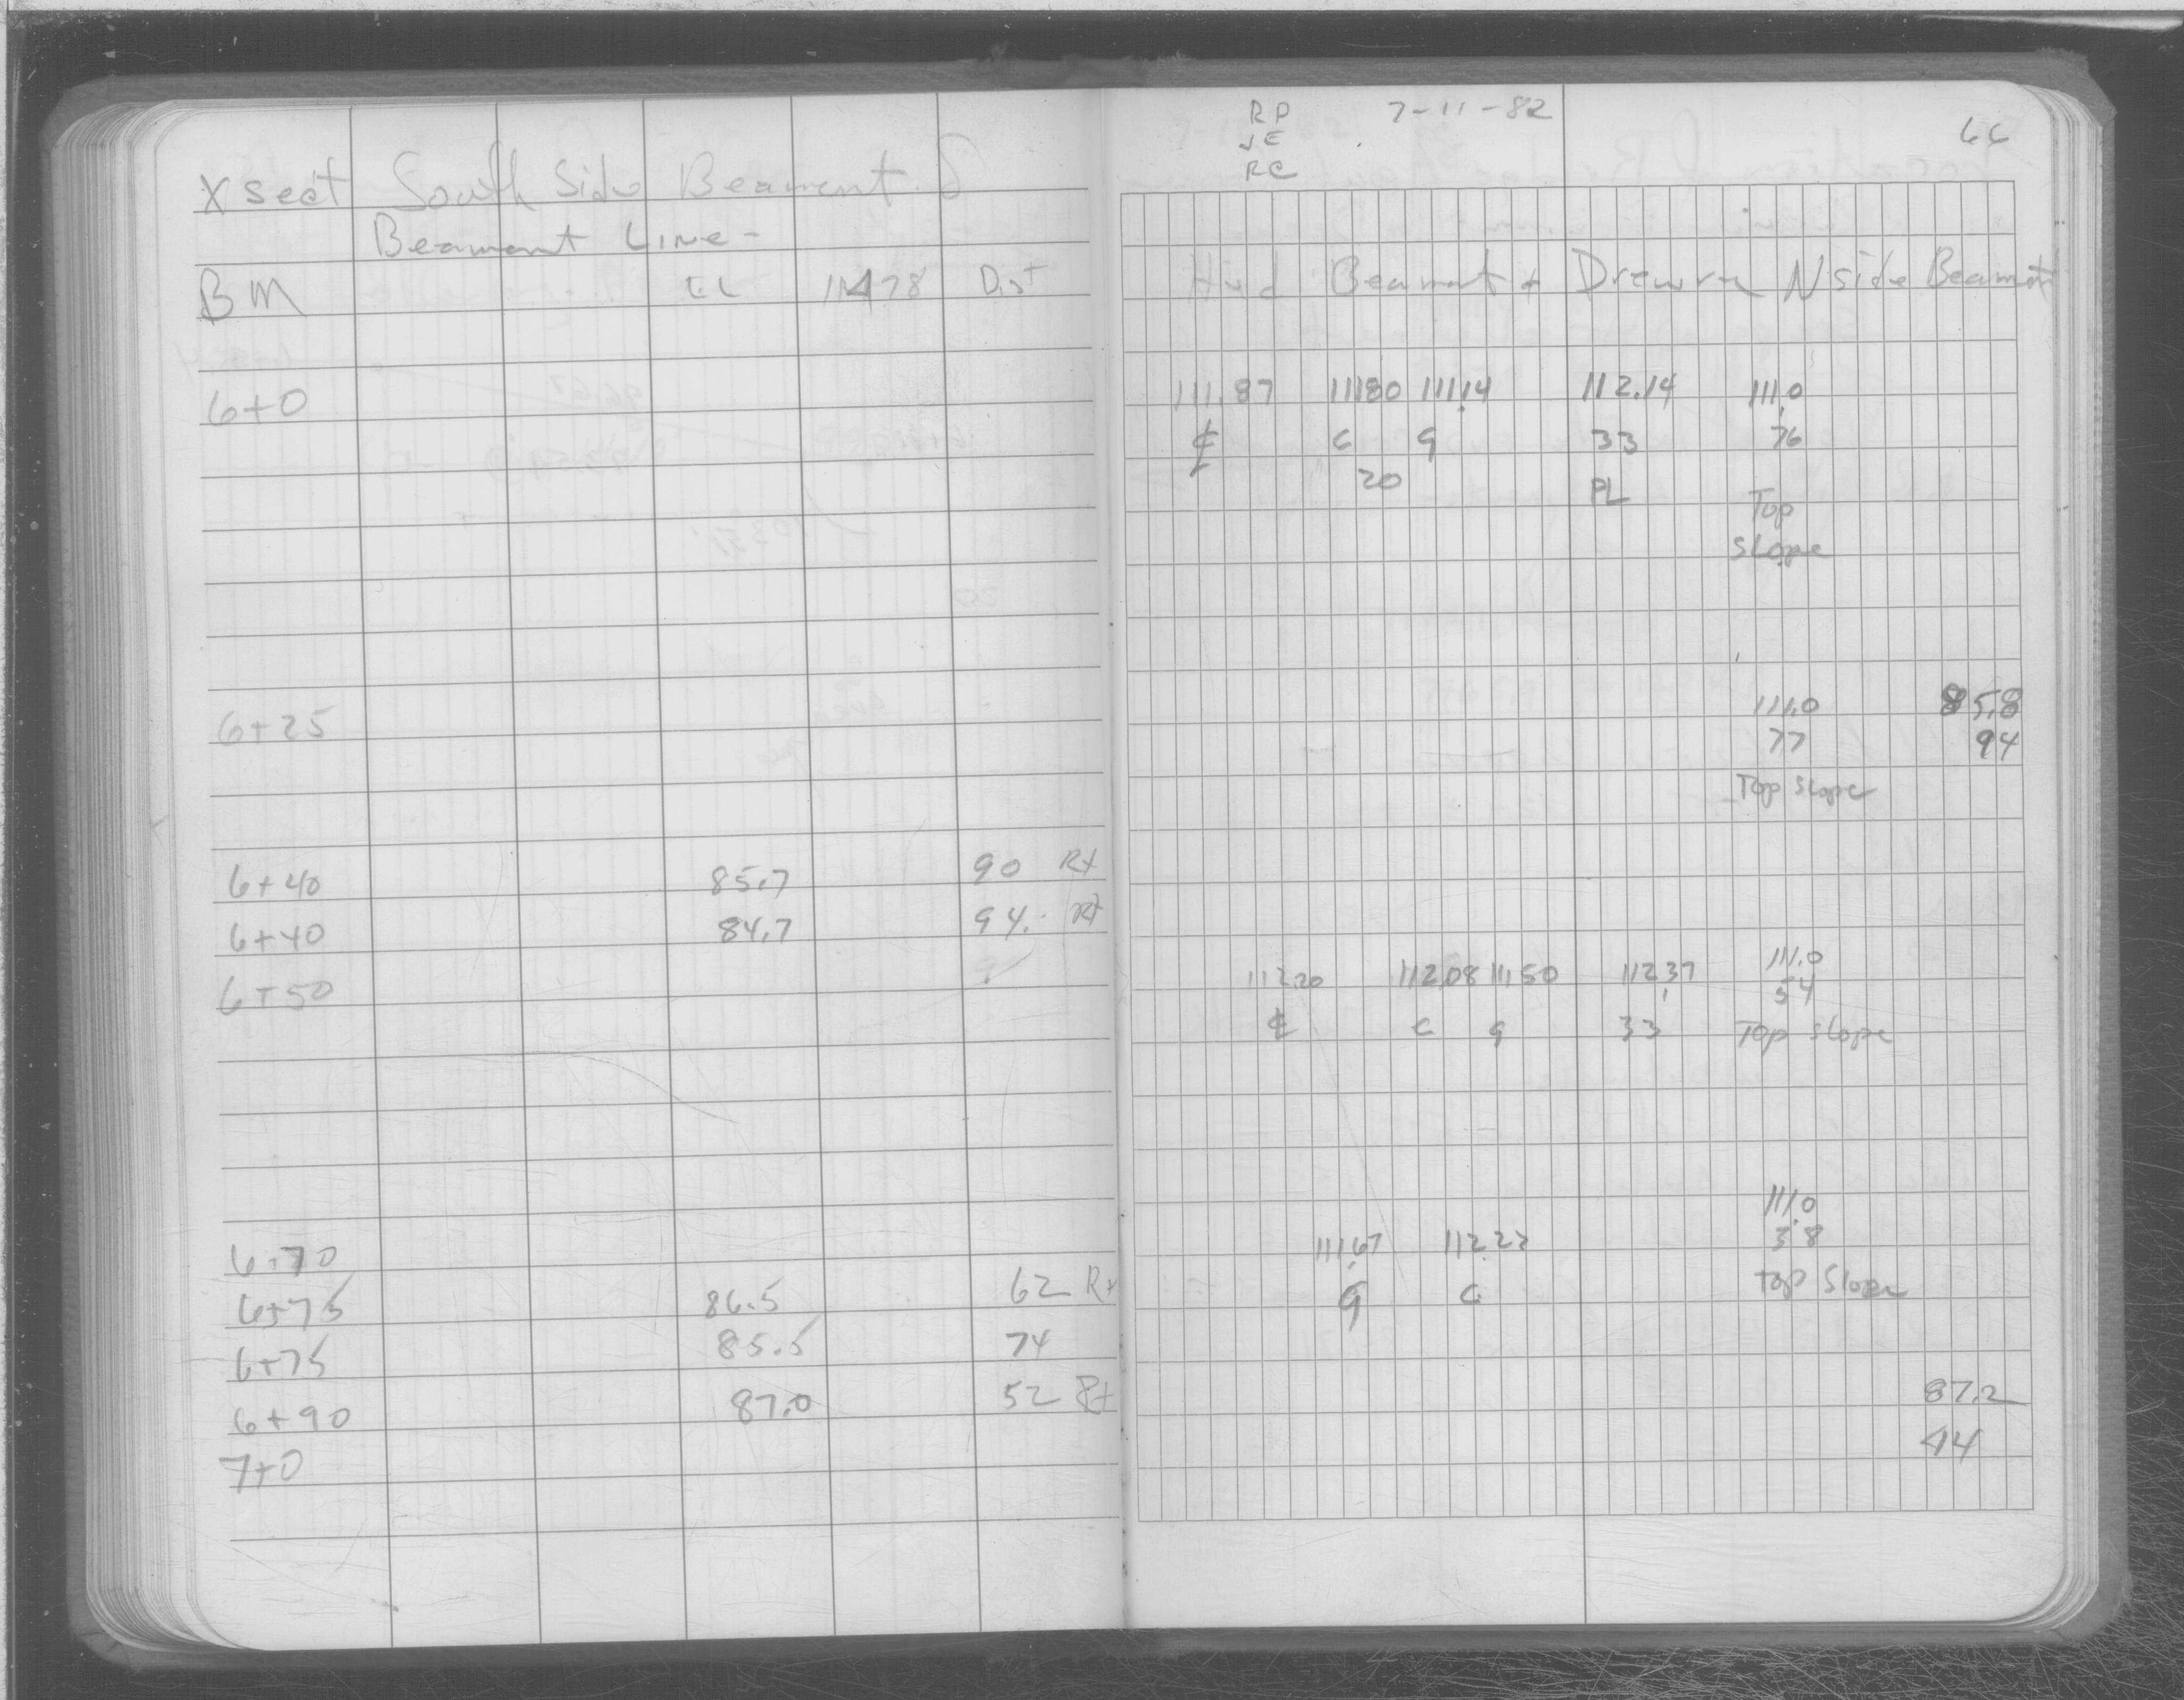 X sect South Side Beamont
Beamont Line -
BM EL 114.78 Dist
6+0
6+25
6+40 85.7 90 Rt
6+40 84.7 94. Rt
6+50
6+70
6+75 86.5 62 Rt
6+75 85.5 74
6+90 87.0 52 Rt
7+0
RP 7-11-82
JE
RC
66
Hyd Beamont + Drewry N side Beamont
111.87 111.80 111.14 112.14 111.0
℄ C G 33 76
20 PL Top
Slope
111.0 85.8
77 94
Top Slope
112.20 112.08 111.50 112.37 111.0
54
℄ C G 33 Top Slope
111.0
111.67 112.22 38
G C Top Slope
87.2
44